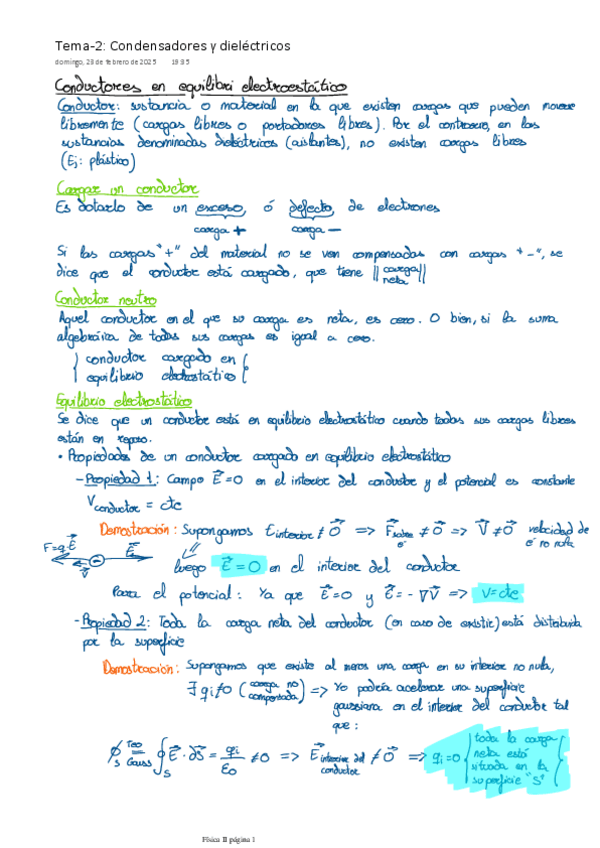 Tema-2: Condensadores y dieléctricos
domingo, 23 de febrero de 2025 19:35
Conductores en equilibri electroestático
Conductor: sustancia o material en la que existen cargas que pueden moverse
libremente (cargas libres o portadores libres). Por el contrario, en las
sustancias denominadas dieléctricos (aislantes), no existen cargas libres
(Ej: plástico)
Cargar un conductor
Es dotarlo de un exceso, ó defecto, de electrones
carga + carga -
Si las cargas "+" del material no se ven compensadas con cargas "-", se
dice que el conductor está cargado, que tiene ||carga neta||
Conductor neutro
Aquel conductor en el que su carga es neta, es cero. O bien, si la suma
algebráica de todas sus cargas es igual a cero.
conductor cargado en
equilibrio electrostático
Equilibrio electrostático
Se dice que un conductor está en equilibrio electrostático cuando todas sus cargas libres
están en reposo.
• Propiedades de un conductor cargado en equilibrio electrostático
- Propiedad 1: Campo E⃗=0 en el interior del conductor y el potencial es constante
V conductor = cte
Demostración: Supongamos E interior ≠ 0⃗ => F⃗ sobre e⁻ ≠ 0⃗ => V⃗ ≠ 0⃗ velocidad de e⁻ no nula
F=q·E⃗ E⃗ - v⃗
luego E⃗ = 0 en el interior del conductor
Para el potencial: Ya que E⃗=0 y E⃗ = -∇V => V=cte
- Propiedad 2: Toda la carga neta del conductor (en caso de existir) está distribuida
por la superficie
Demostración: Supongamos que existe al menos una carga en su interior no nula,
∃ qi≠0 (carga no compensada) => Yo podría una superficie
gaussiana en el interior del conductor tal
que:
∮s Teo Gauss ∮s E⃗ · dS⃗ = qi/ε0 ≠ 0 => E⃗ interior del conductor ≠ 0⃗ => qi=0
toda la carga
neta está
situada en la
superficie "S"
Física II página 1